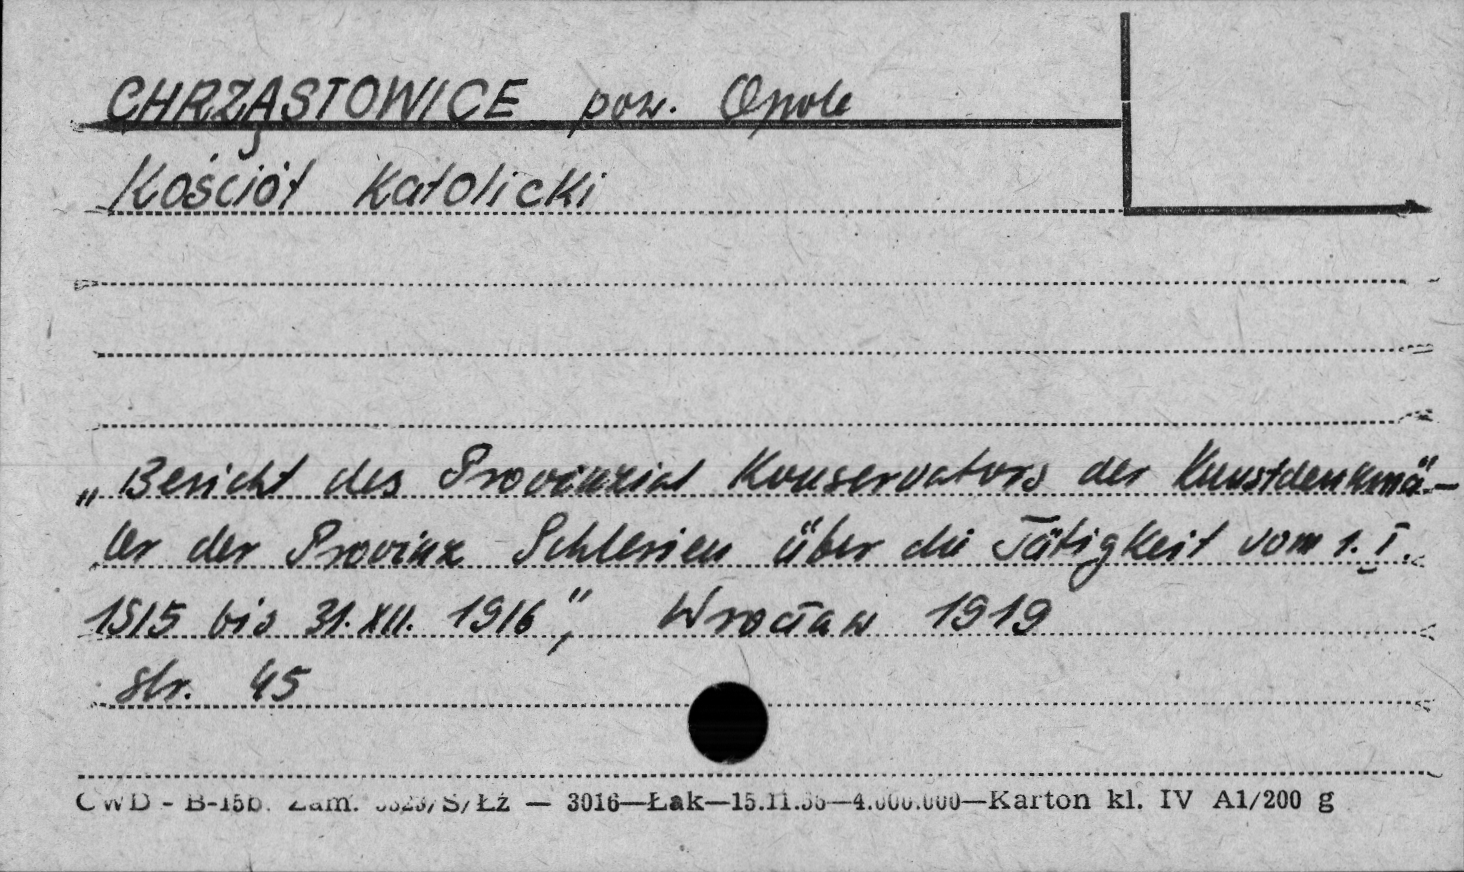 CHRZĄSTOWICE pow. Opole
Kościół Katolicki
„Bericht des Provinzial Konservators der Kunstdenkmä-
ler der Provinz Schlesien über die Tätigkeit vom 1. I.
1915 bis 31. XII. 1916", Wrocław 1919
str. 45
CWD - B-15b. Zam. /S/Łż — 3016—Łak—15.11.55—4.000.000—Karton kl. IV A1/200 g